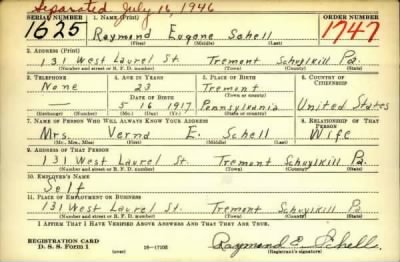 Separated July 16, 1946
SERIAL NUMBER 1. NAME (Print) ORDER NUMBER
1625 Raymond Eugene Schell 1747
(First) (Middle) (Last)
2. ADDRESS (Print)
131 West Laurel St. Tremont Schuylkill Pa.
(Number and street or R. F. D. number) (Town) (County) (State)
3. TELEPHONE 4. AGE IN YEARS 5. PLACE OF BIRTH 6. COUNTRY OF CITIZENSHIP
None 23 Tremont
DATE OF BIRTH (Town or county)
5 16 1917 Pennsylvania United States
(Exchange) (Number) (Mo.) (Day) (Yr.) (State or country)
7. NAME OF PERSON WHO WILL ALWAYS KNOW YOUR ADDRESS 8. RELATIONSHIP OF THAT PERSON
Mrs. Verna E. Schell Wife
(Mr., Mrs., Miss) (First) (Middle) (Last)
9. ADDRESS OF THAT PERSON
131 West Laurel St. Tremont Schuylkill Pa.
(Number and street or R. F. D. number) (Town) (County) (State)
10. EMPLOYER'S NAME
Self
11. PLACE OF EMPLOYMENT OR BUSINESS
131 West Laurel St. Tremont Schuylkill Pa.
(Number and street or R. F. D. number) (Town) (County) (State)
I AFFIRM THAT I HAVE VERIFIED ABOVE ANSWERS AND THAT THEY ARE TRUE.
REGISTRATION CARD
D. S. S. Form 1 (over) 16—17105 Raymond E. Schell
(Registrant's signature)